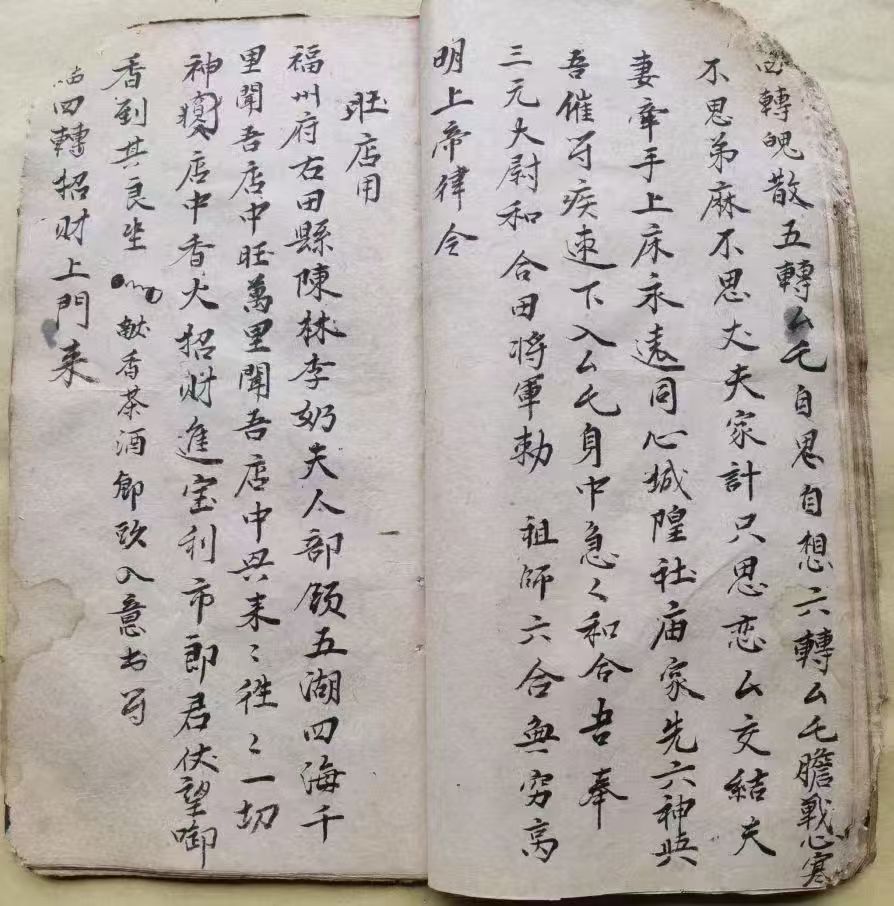 轉魄散五轉厶乇自思自想六轉厶乇膽戰心寒
不思弟麻不思丈夫家計只思恋厶交結夫
妻牽手上床永遠同心城隍社庙家先六神共
吾催符疾速下入厶乇身中急〻和合吾奉
三元大尉和合田将軍勅 祖師六合無穷高
明上帝律令
旺店用
福州府右田縣陳林李奶夫人部領五湖四海千
里聞吾店中旺萬里聞吾店中兴来〻徃〻一切
神 店中香火招财進宝利市郎君伏望啣
香到其良坐 献香茶酒 入意书符
四轉招财上門来